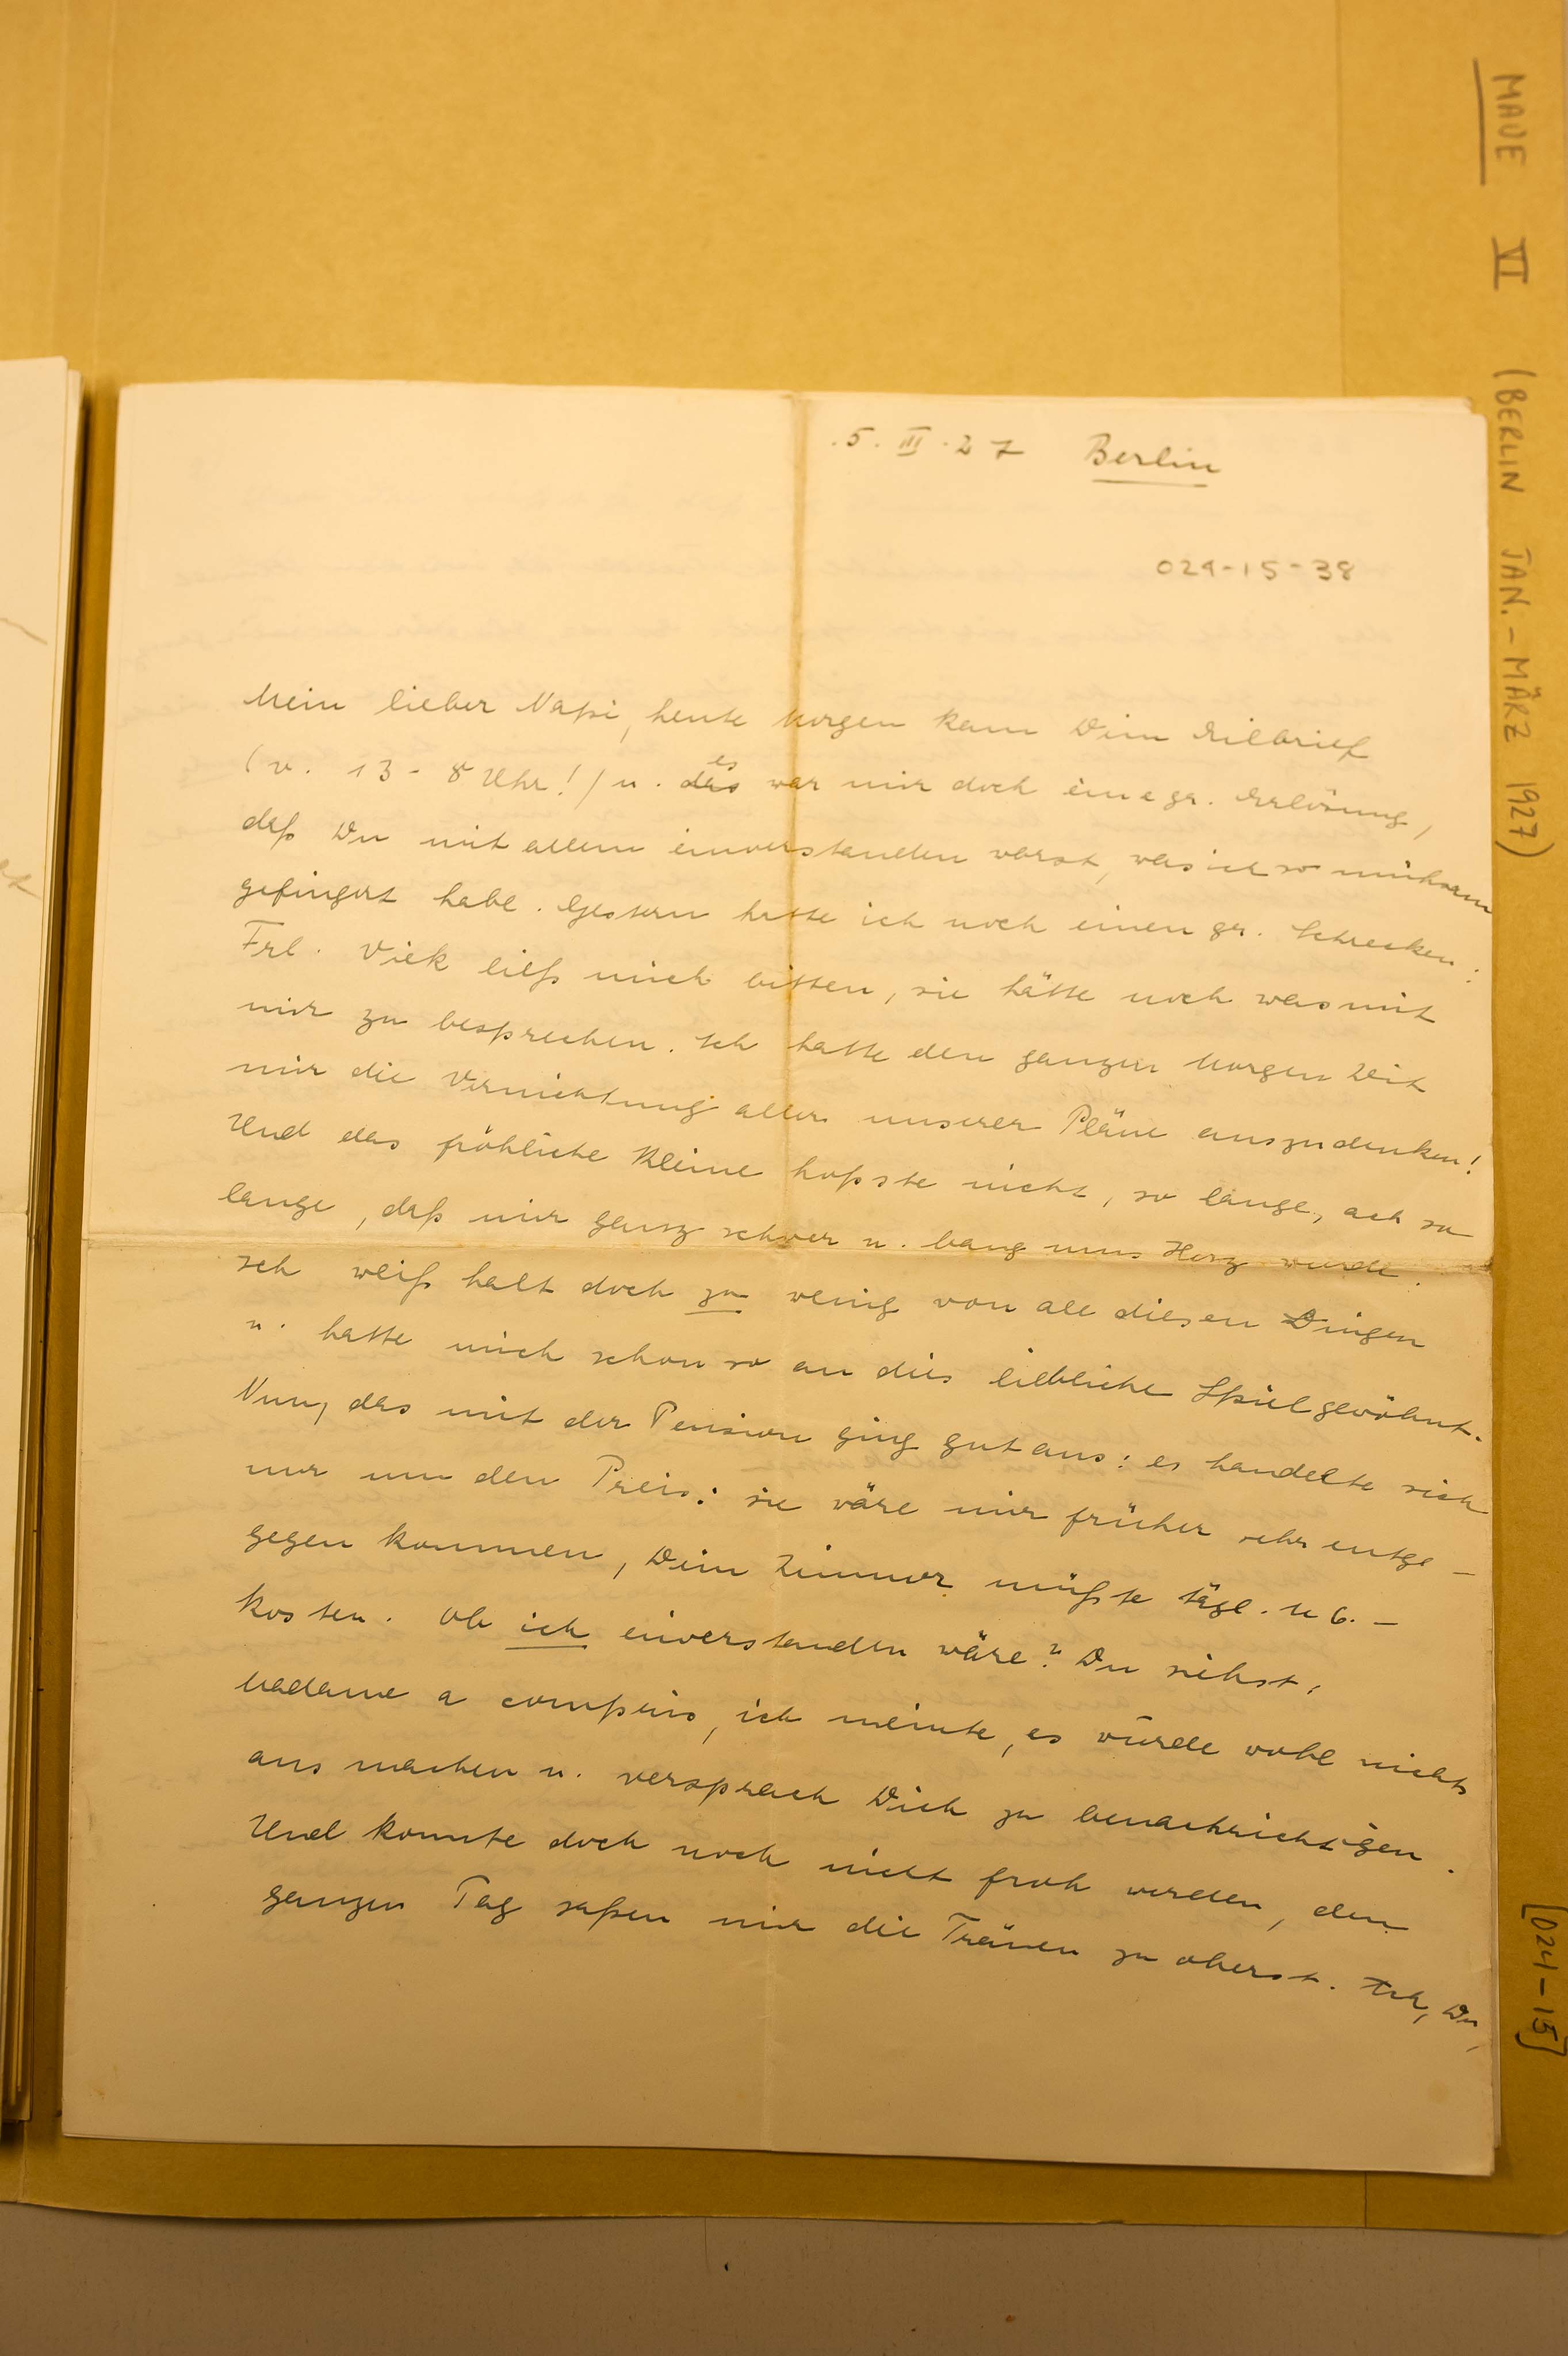 5. III. 27 Berlin
024-15-38
Mein lieber Napi, heute Morgen kam Dein Eilbrief
(v. 13 - 8 Uhr!) u. es war mir doch eine gr. Erlösung,
daß Du mit allem einverstanden warst, was ich so mühsam
gefingert habe. Gestern hatte ich noch einen gr. Schrecken:
Frl. Viek ließ mich bitten, sie hätte noch was mit
mir zu besprechen. Ich hatte den ganzen Morgen Zeit
mir die Vernichtung aller unserer Pläne auszudenken!
Und das fröhliche Kleine hopste nicht, so lange, ach so
lange, daß mir ganz schwer u. bang ums Herz wurde.
Ich weiß halt doch zu wenig von all diesen Dingen
u. hatte mich schon so an dies liebliche Spiel gewöhnt.
Nun, das mit der Pension ging gut aus: es handelte sich
nur um den Preis: sie wäre mir früher sehr entge-
gegen kommen, Dein Zimmer müßte tägl. M 6.-
kosten. Ob ich einverstanden wäre? Du siehst,
Madame a compris, ich meinte, es würde wohl nichts
aus machen u. versprach Dich zu benachrichtigen.
Und konnte doch noch nicht froh werden, den
ganzen Tag saßen mir die Tränen zu oberst. Ach, Du,
MAUE VI (BERLIN JAN.-MÄRZ 1927)
[024-15]